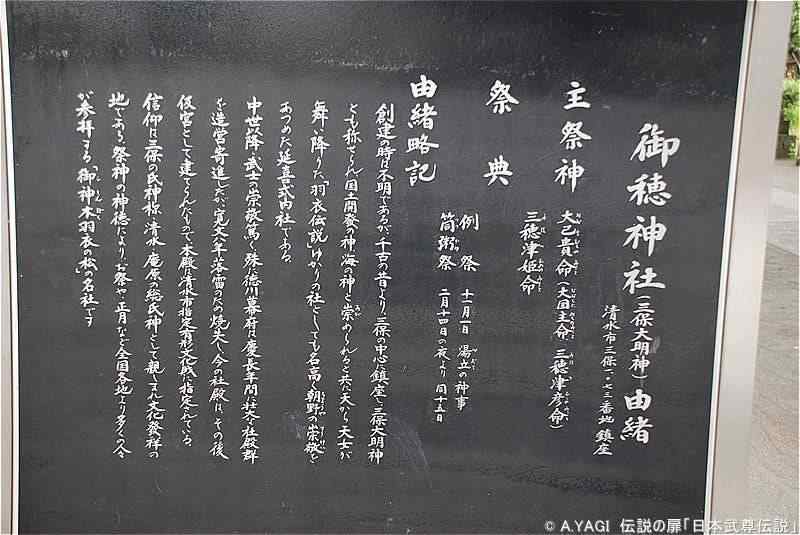 御穂神社(三保大明神)由緒
清水市三保一、七三番地 鎮座
主祭神
大己貴命(大国主命、三穂津彦命)
三穂津姫命
祭典
例祭 十一月一日 湯立の神事
筒粥祭 二月十四日の夜より同十五日
由緒略記
創建の時は不明であるが、千古の昔より、三保の中心に鎮座し、三保大明神
とも称せられ、国土開発の神、海の神と崇められると共に、天から天女が
舞い降りた「羽衣伝説」ゆかりの社としても名高く、朝野の崇敬を
あつめた延喜式内社である。
中世以降、武士の崇敬篤く、殊に徳川幕府は慶長年間に壮大な社殿群
を造営寄進したが、寛文八年落雷のため焼失し、今の社殿は、その後
仮宮として建てられたもので、本殿は清水市指定有形文化財に指定されている。
信仰は三保の氏神様、清水・庵原の総氏神として親しまれ、文化発祥の
地であり、祭神の神徳により、お祭や正月など全国各地より多くの人々
が参拝する「御神木羽衣の松」の名社です
© A.YAGI 伝説の扉「日本武尊伝説」